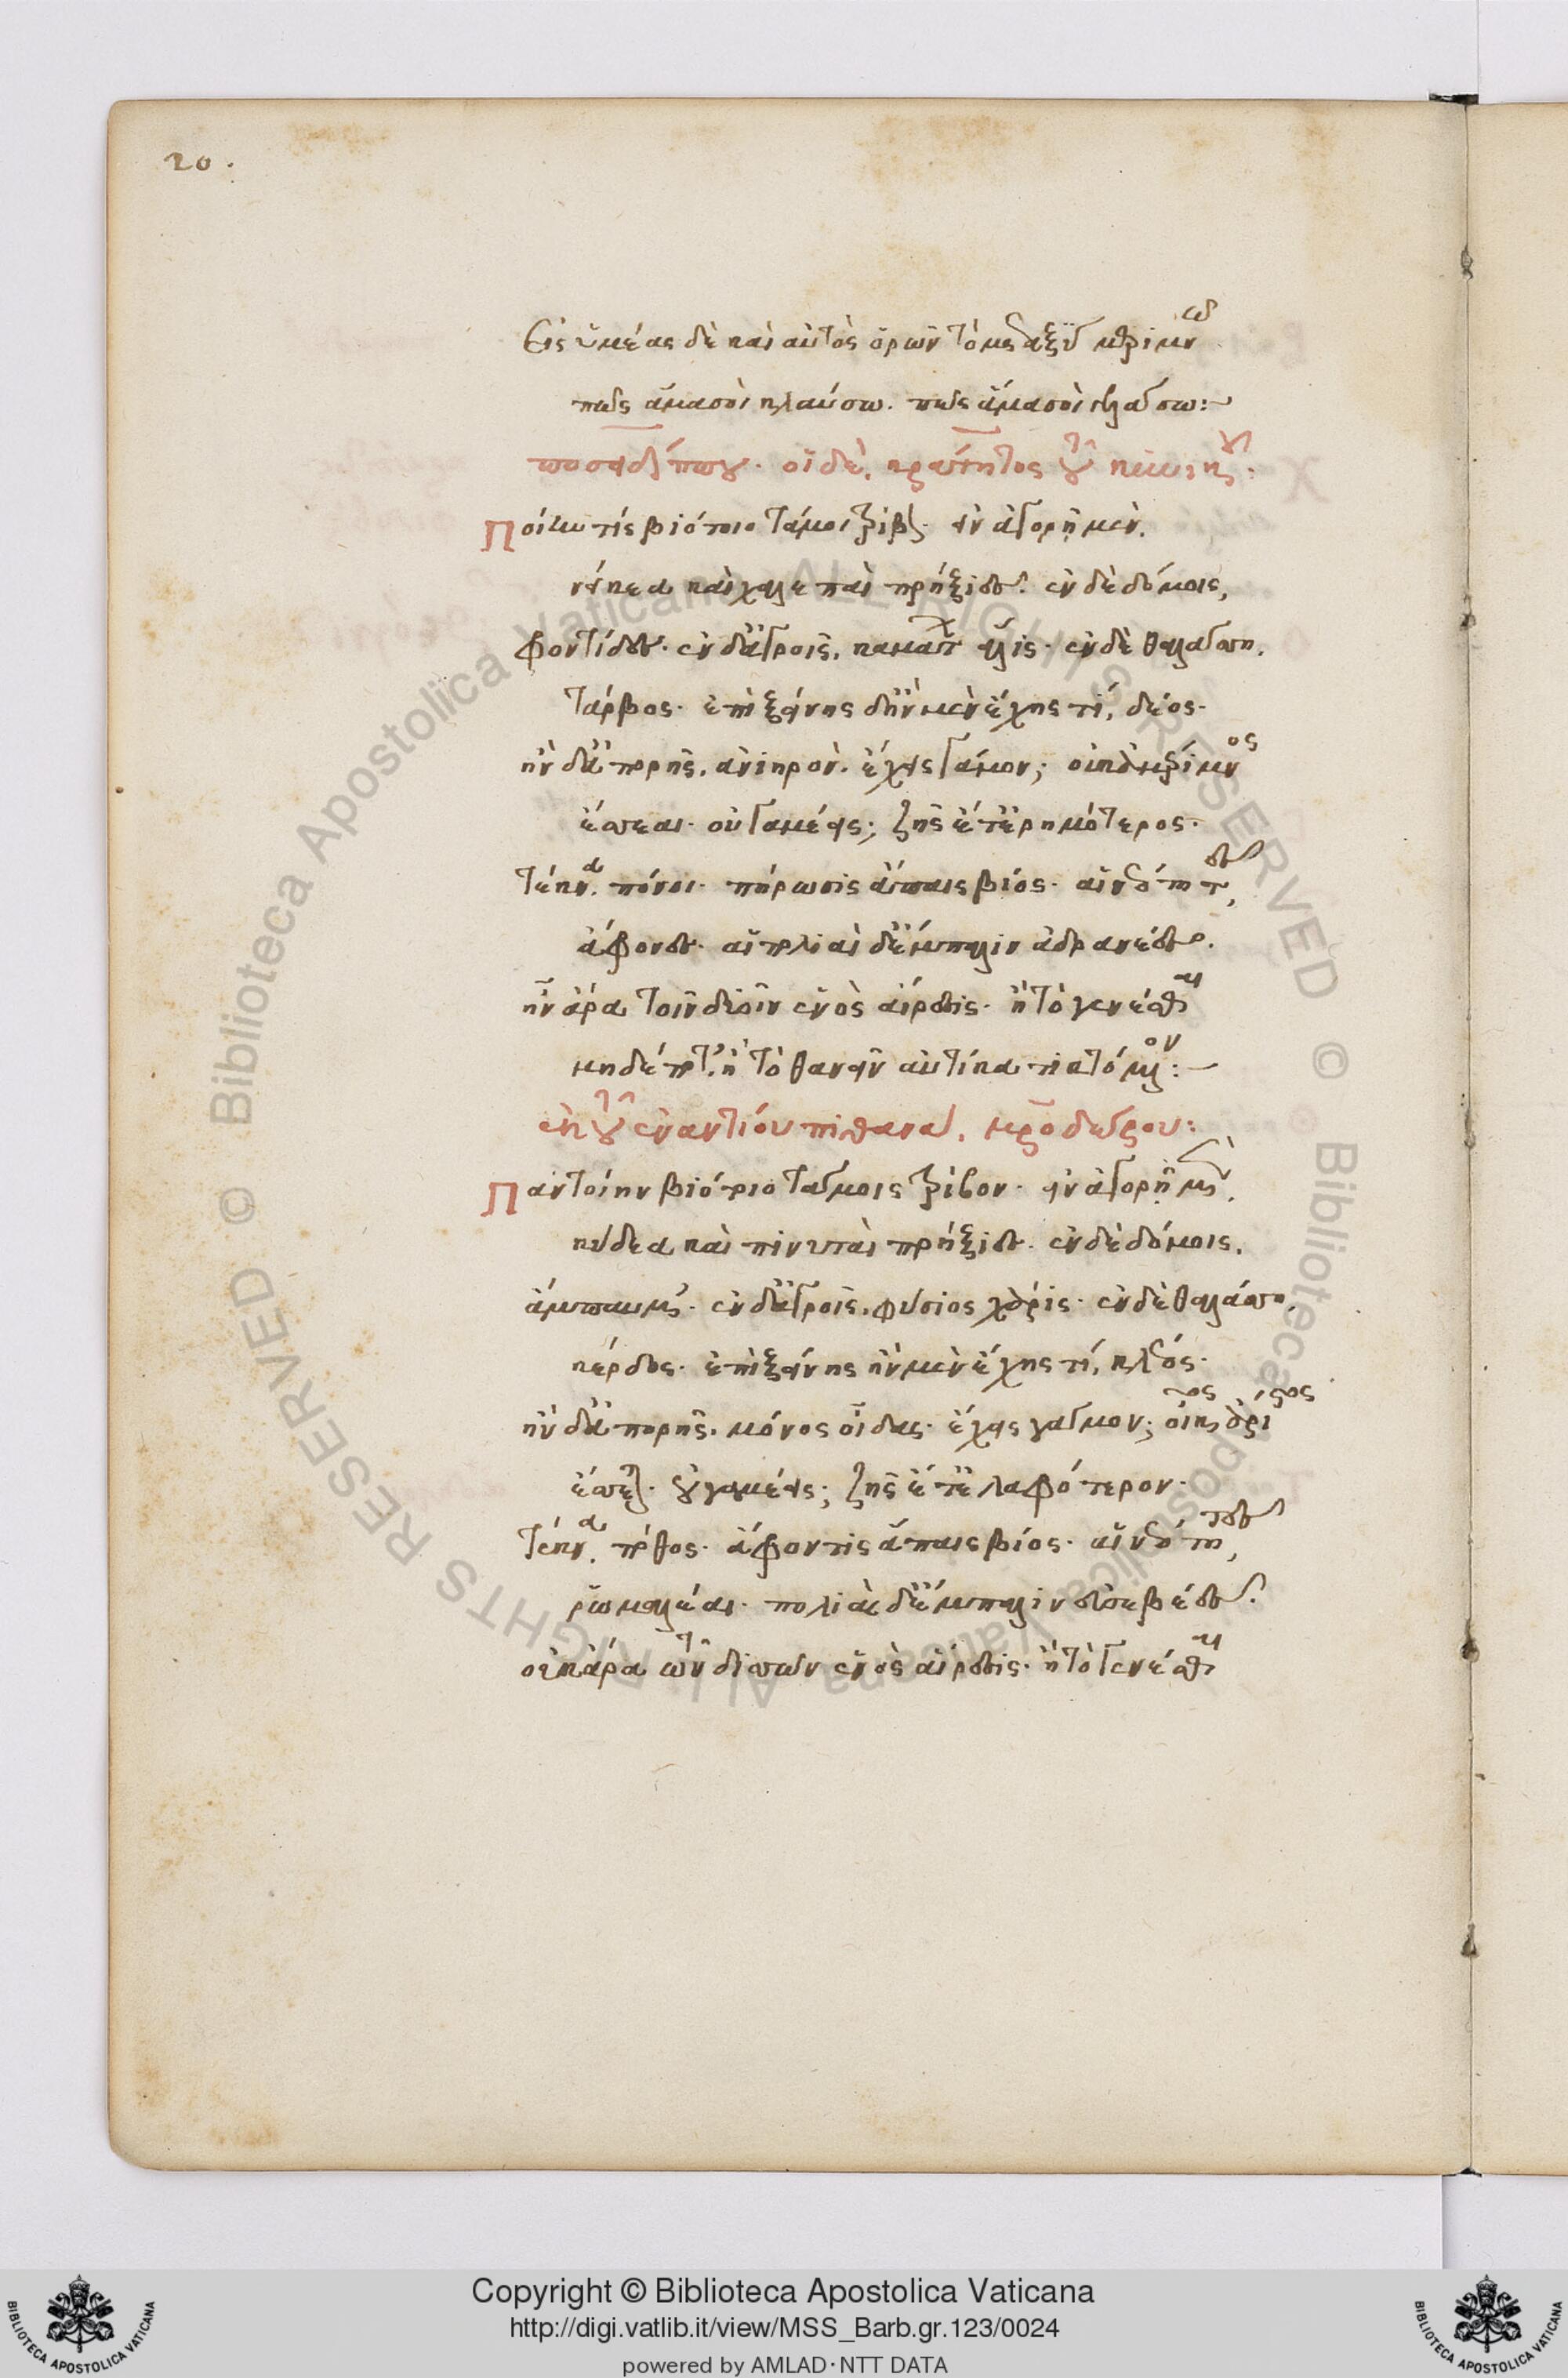 20.
Εἰς ὑμέας δὲ καὶ αὐτὸς ὁρῶν τὸ μεταξὺ μεριμνῶ
πῶς ἅμα σοὶ κλαύσω. πῶς ἅμα σοὶ γελάσω:
ποσειδίππου. οἱ δὲ, κράτητος τοῦ κυνικοῦ:
Ποίην τίς βιότοιο τάμοι τρίβον· εἰν ἀγορῇ μὲν,
νείκεα καὶ χαλεπαὶ πρήξιες. ἐν δὲ δόμοις,
φροντίδες. ἐν δ' ἀγροῖς, καμάτων ἅλις. ἐν δὲ θαλάσσῃ,
τάρβος. ἐπὶ ξείνης δ' ἢν μὲν ἔχῃς τί, δέος.
ἢν δ' ἀπορῇς, ἀνιηρὸν. ἔχεις γάμον; οὐκ ἀμέριμνος
ἔσσεαι. οὐ γαμέεις; ζῇς ἔτ' ἐρημότερος.
τέκνα, πόνοι. πήρωσις ἄπαις βίος. αἱ νεότητες,
ἄφρονες. αἱ πολιαὶ δ' ἔμπαλιν ἀδρανέες.
ἦν ἄρα τοῖν δοιοῖν ἑνὸς αἵρεσις. ἢ τὸ γενέσθαι
μηδέποτ', ἢ τὸ θανεῖν αὐτίκα τικτόμενον:
ἐκ τοῦ ἐναντίου πιθανὰ, μητροδώρου:
Παντοίην βιότοιο τάμοις τρίβον. εἰν ἀγορῇ μὲν,
κύδεα καὶ πινυταὶ πρήξιες. ἐν δὲ δόμοις,
ἄμπαυμα. ἐν δ' ἀγροῖς, φύσιος χάρις. ἐν δὲ θαλάσσῃ,
κέρδος. ἐπὶ ξείνης ἢν μὲν ἔχῃς τί, κλέος.
ἢν δ' ἀπορῇς, μόνος οἶδας. ἔχεις γάμον; οἶκος ἄριστος
ἔσσεται. οὐ γαμέεις; ζῇς ἔτ' ἐλαφρότερον.
τέκνα, πόθος. ἄφροντις ἄπαις βίος. αἱ νεότητες,
ῥωμαλέαι. πολιαὶ δ' ἔμπαλιν εὐσεβέες.
οὐκ ἄρα τῶν δισσῶν ἑνὸς αἵρεσις. ἢ τὸ γενέσθαι
Copyright © Biblioteca Apostolica Vaticana
http://digi.vatlib.it/view/MSS_Barb.gr.123/0024
powered by AMLAD·NTT DATA